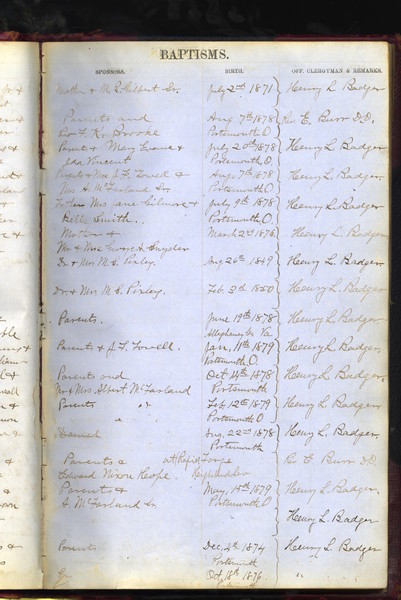 BAPTISMS.
SPONSORS. BIRTH. OFF. CLERGYMAN & REMARKS.
Mother & M. Gilbert Sr. July 2nd 1871 Henry L. Badger
Parents and Aug 7th 1878 Rev E. Burr D.D.
K. Brooke Portsmouth O
Parents & Mary Evans & July 20th 1878 Henry L. Badger
Ida Vincent Portsmouth O.
Mrs J. F. Towell & Aug. 7th 1878 Henry L. Badger
Mrs. McFarland Sr. Portsmouth O
Father Mrs Jane Gilmore & July 9th 1878 Henry L. Badger
Belle Smith. Portsmouth O.
Mother & March 2nd 1876 Henry L. Badger
Mr & Mrs George Snyder
Dr & Mrs M. S. Pixley. Aug 26th 1849 Henry L. Badger
Dr. & Mrs M. S. Pixley. Feb 3d 1850 Henry L. Badger
Parents. June 19th 1878 Henry L. Badger
Va
Parents & J. F. Towell. Jan. 11th 1879 Henry L. Badger
Portsmouth O.
Parents and Oct 14th 1878 Henry L. Badger.
Mr & Mrs Albert McFarland Portsmouth
Parents Feb 12th 1879 Henry L. Badger.
Portsmouth O
Aug. 22nd 1878 Henry L. Badger.
Portsmouth
Parents & E. Burr D.D.
Edward Nixon
Parents & May 19th 1879 Henry L. Badger
McFarland Sr. Portsmouth O
Henry L. Badger
Parents Dec. 4th 1874 Henry L. Badger
Portsmouth
Oct. 18th 1876 "